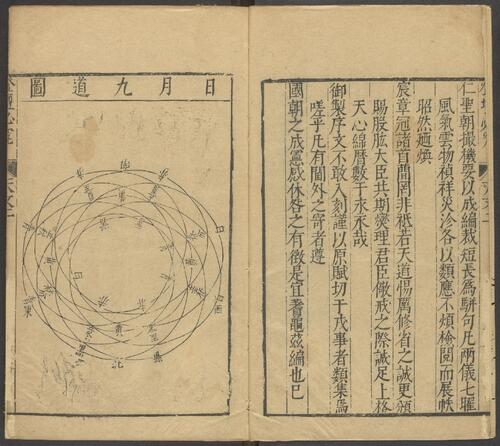 仁聖朝撮機要以成編裁短長為駢句凡兩儀七曜
風氣雲物禎祥災沴各以類應不煩檢閱而展帙
昭然廼煥
宸章冠諸首簡罔非祗若天道惕厲修省之誠更頒
賜股肱大臣共期燮理君臣儆戒之際誠足上格
天心綿曆數于永永哉
御製序文不敢入刻謹以原賦切于戎事者類集焉
嗟乎凡有閫外之寄者遵
國朝之成憲感休咎之有徵是宜耆龜茲編也已
日月九道圖
南
北